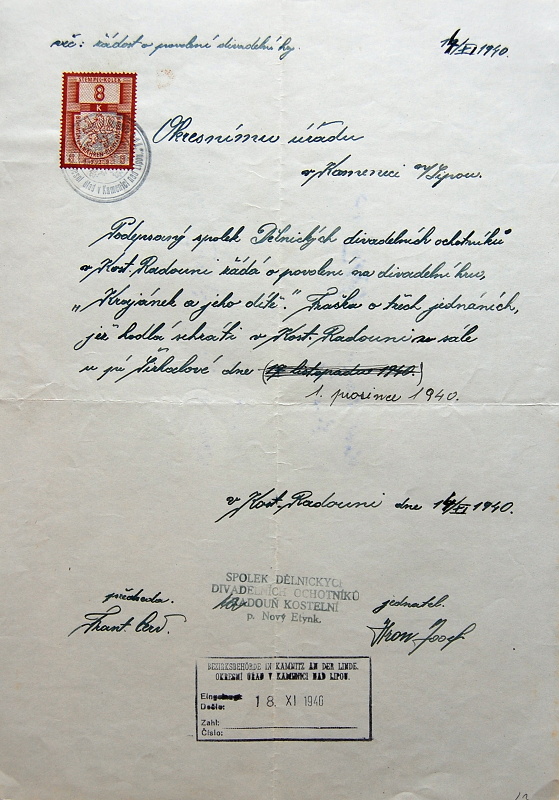 věc: žádost o povolení divadelní hry.
14/XI 1940.
STEMPEL-KOLEK
8
K
Okresnímu úřadu
v Kamenici n/Lipou.
Podepsaný spolek Dělnických divadelních ochotníků
v Kost. Radouni žádá o povolení na divadelní hru,
„Krojánek a jeho dítě." Fraška o třech jednáních,
jež hodlá sehráti v Kost. Radouni ve sále
u pí dne (19 listopadu 1940.)
1. prosince 1940.
v Kost. Radouni dne 14/XI 1940.
SPOLEK DĚLNICKÝCH
DIVADELNÍCH OCHOTNÍKŮ
RADOUŇ KOSTELNÍ
p. Nový Etynk.
předseda.
jednatel.
Frant.
Josef
BEZIRKSBEHÖRDE IN KAMNITZ AN DER LINDE.
OKRESNÍ ÚŘAD V KAMENICI NAD LIPOU.
Eingelangt
Došlo:
18. XI 1940
Zahl:
Číslo: